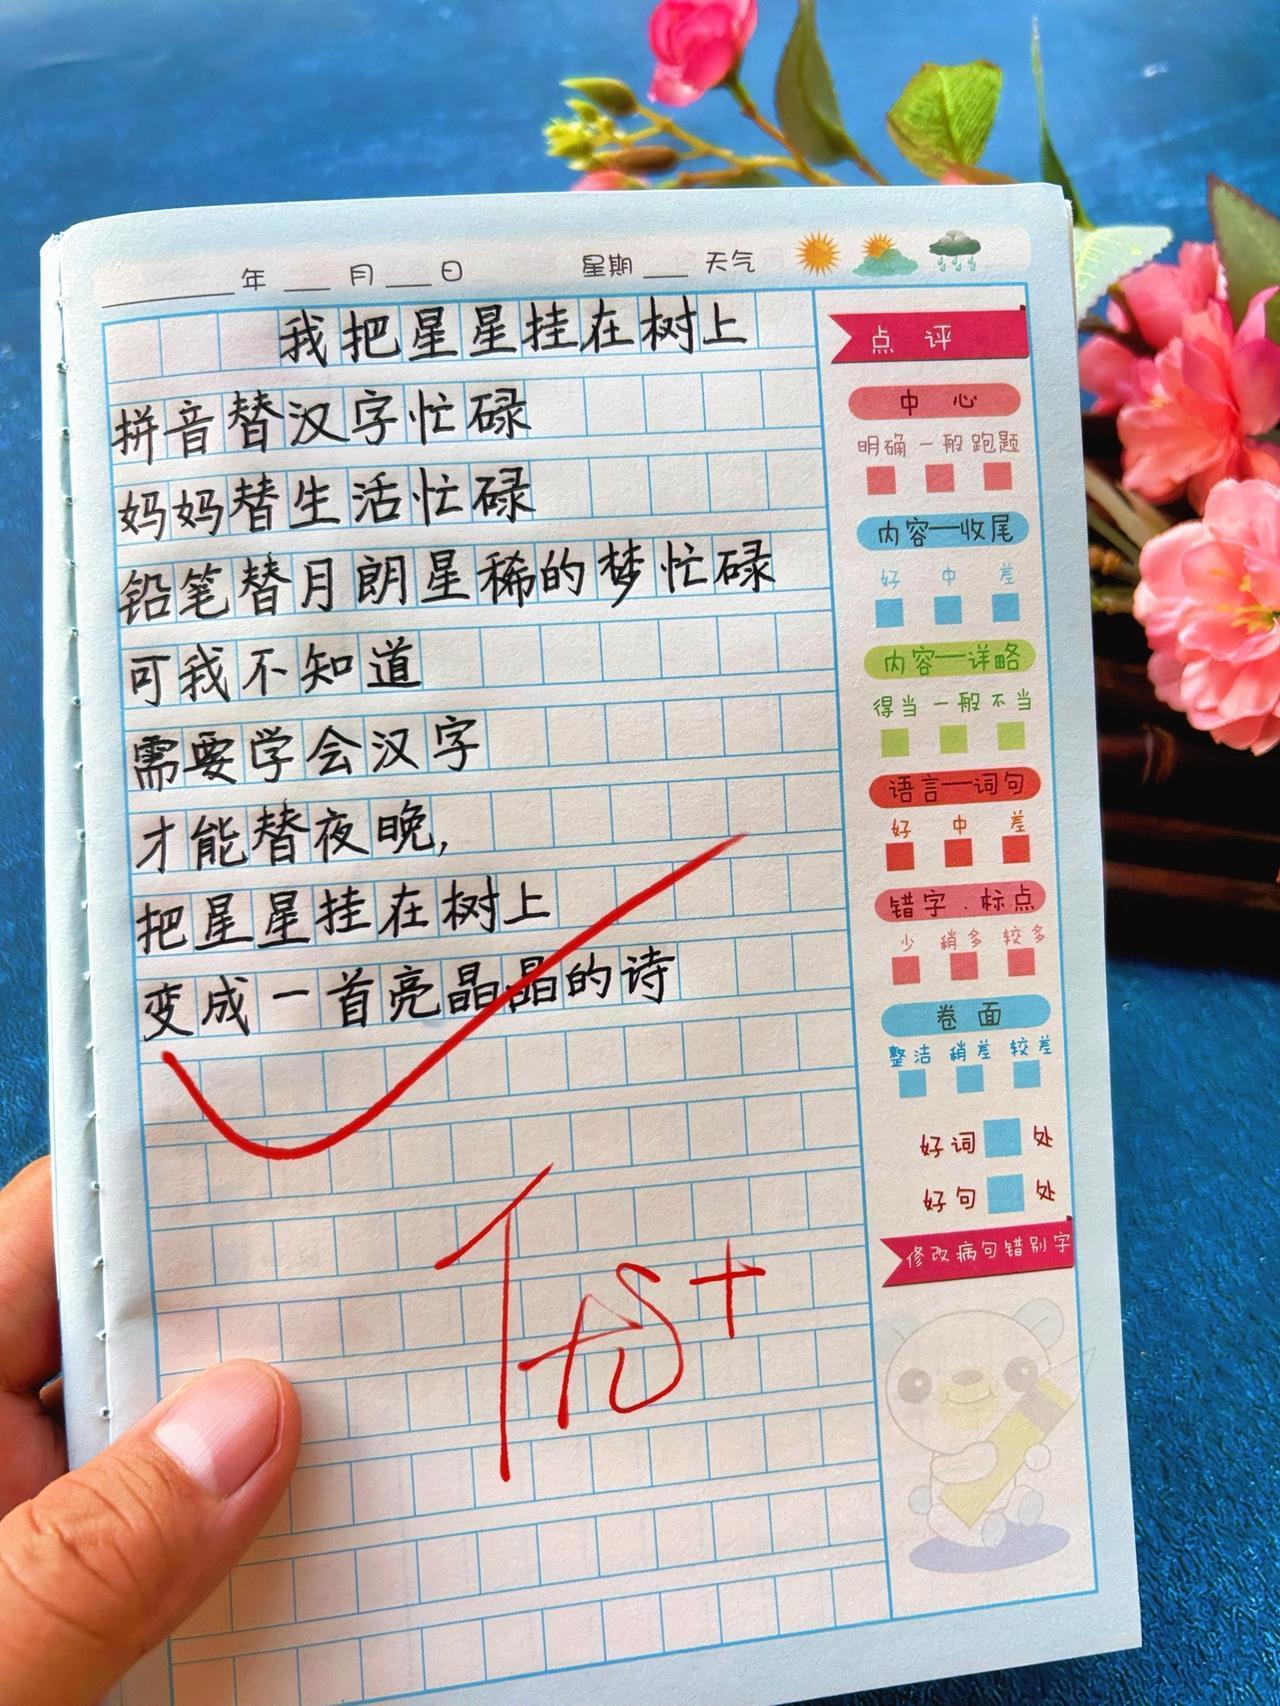 年 月 日 星期 天气
我把星星挂在树上
拼音替汉字忙碌
妈妈替生活忙碌
铅笔替月朗星稀的梦忙碌
可我不知道
需要学会汉字
才能替夜晚,
把星星挂在树上
变成一首亮晶晶的诗
点评
中心
明确 一般 跑题
内容—收尾
好 中 差
内容—详略
得当 一般 不当
语言—词句
好 中 差
错字、标点
少 稍多 较多
卷面
整洁 稍差 较差
好词 处
好句 处
修改病句错别字